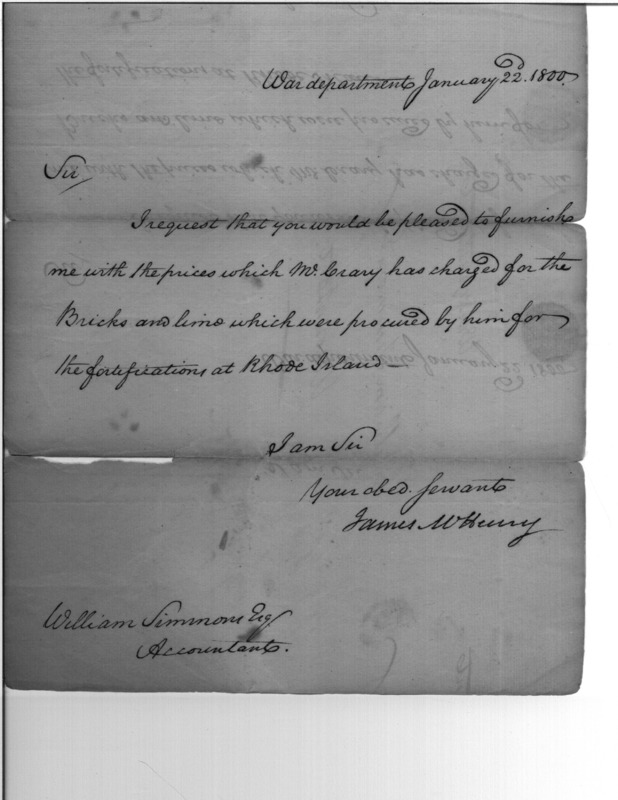 War department January 22d. 1800.
Sir,
I request that you would be pleased to furnish
me with the prices which Mr. Crary has charged for the
Bricks and lime which were procured by him for
the fortifications at Rhode Island—
I am Sir
Your obed. servant
James McHenry
William Simmons Esq.
Accountant.